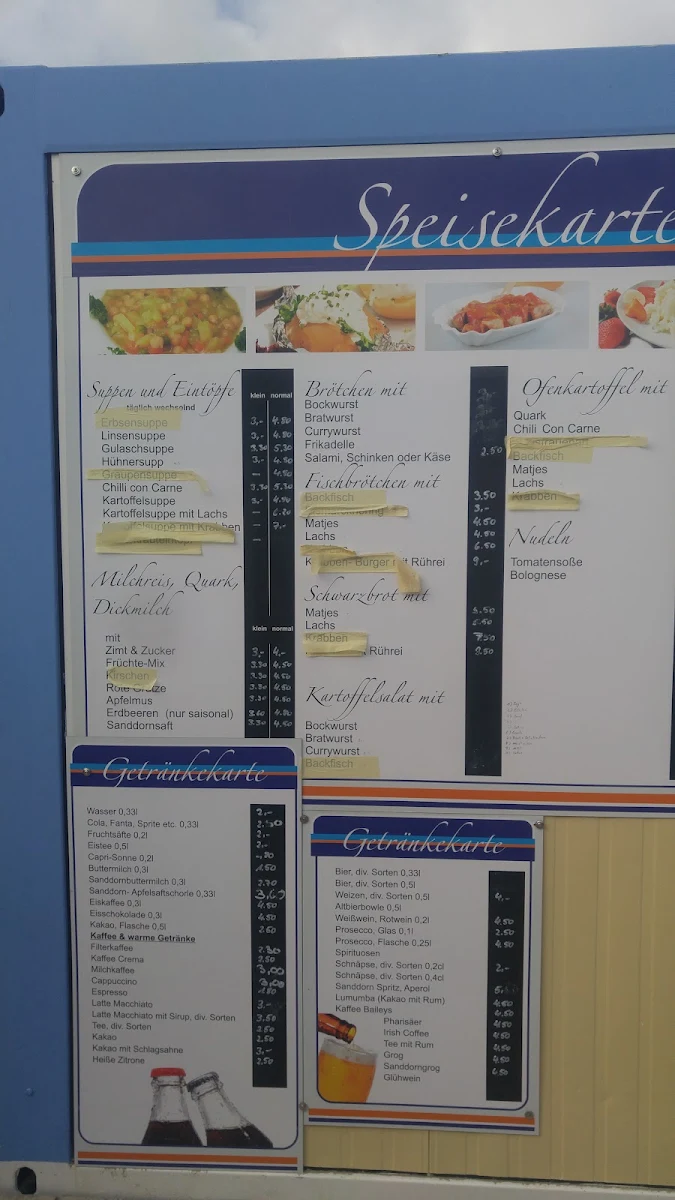 Speisekarte
Suppen und Eintöpfe
täglich wechselnd
klein normal
Erbsensuppe 3,- 4.80
Linsensuppe 3,- 4.80
Gulaschsuppe 3.30 5.30
Hühnersupp 3,- 4.80
Graupensuppe — 4.50
Chilli con Carne 3.30 5.30
Kartoffelsuppe 3,- 4.50
Kartoffelsuppe mit Lachs — 6.20
Kartoffelsuppe mit Krabben — 7,-
—
Milchreis, Quark,
Dickmilch
klein normal
mit
Zimt & Zucker 3,- 4,-
Früchte-Mix 3.30 4.50
Kirschen 3.30 4.50
Rote Grütze 3.30 4.50
Apfelmus 3.30 4.50
Erdbeeren (nur saisonal) 3.60 4.80
Sanddornsaft 3.30 4.50
Brötchen mit
Bockwurst
Bratwurst
Currywurst
Frikadelle
Salami, Schinken oder Käse 2.50
Fischbrötchen mit
Backfisch 3.50
3,-
Matjes 4.50
Lachs 4.50
6.50
Krabben- Burger mit Rührei 9,-
Schwarzbrot mit
Matjes 3.50
Lachs 5.50
Krabben 7.50
Rührei 9.50
Kartoffelsalat mit
Bockwurst
Bratwurst
Currywurst
Backfisch
Ofenkartoffel mit
Quark
Chili Con Carne
Backfisch
Matjes
Lachs
Krabben
Nudeln
Tomatensoße
Bolognese
Getränkekarte
Wasser 0,33l 2,-
Cola, Fanta, Sprite etc. 0,33l 2.30
Fruchtsäfte 0,2l 2,-
Eistee 0,5l 2,-
Capri-Sonne 0,2l
Buttermilch 0,3l 1.50
Sanddornbuttermilch 0,3l 2.70
Sanddorn- Apfelsaftschorle 0,33l
Eiskaffee 0,3l 4.50
Eisschokolade 0,3l 4.50
Kakao, Flasche 0,5l 2.50
Kaffee & warme Getränke
Filterkaffee 2.30
Kaffee Crema 2.50
Milchkaffee 3,00
Cappuccino 3,00
Espresso
Latte Macchiato 3.-
Latte Macchiato mit Sirup, div. Sorten 3.50
Tee, div. Sorten 2.50
Kakao 2.50
Kakao mit Schlagsahne 3,-
Heiße Zitrone 2.50
Getränkekarte
Bier, div. Sorten 0,33l
Bier, div. Sorten 0,5l
Weizen, div. Sorten 0,5l 4,-
Altbierbowle 0,5l
Weißwein, Rotwein 0,2l 4.50
Prosecco, Glas 0,1l 2.50
Prosecco, Flasche 0,25l 4.50
Spirituosen
Schnäpse, div. Sorten 0,2cl 2.-
Schnäpse, div. Sorten 0,4cl
Sanddorn Spritz, Aperol
Lumumba (Kakao mit Rum) 4.50
Kaffee Baileys 4.50
Pharisäer 4.50
Irish Coffee 4.50
Tee mit Rum 4.50
Grog 4.50
Sanddorngrog
Glühwein